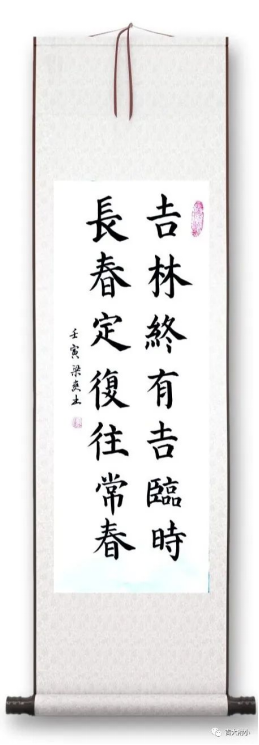 吉林終有吉臨時
長春定復往常春
壬寅 梁
吉大附小